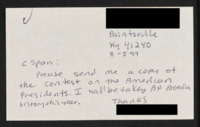 Paintsville
Ky 41240
3-5-99
C Span:
Please send me a copy of
the contest on the American
Presidents. I will be taking AP America
history this year.
Thanks